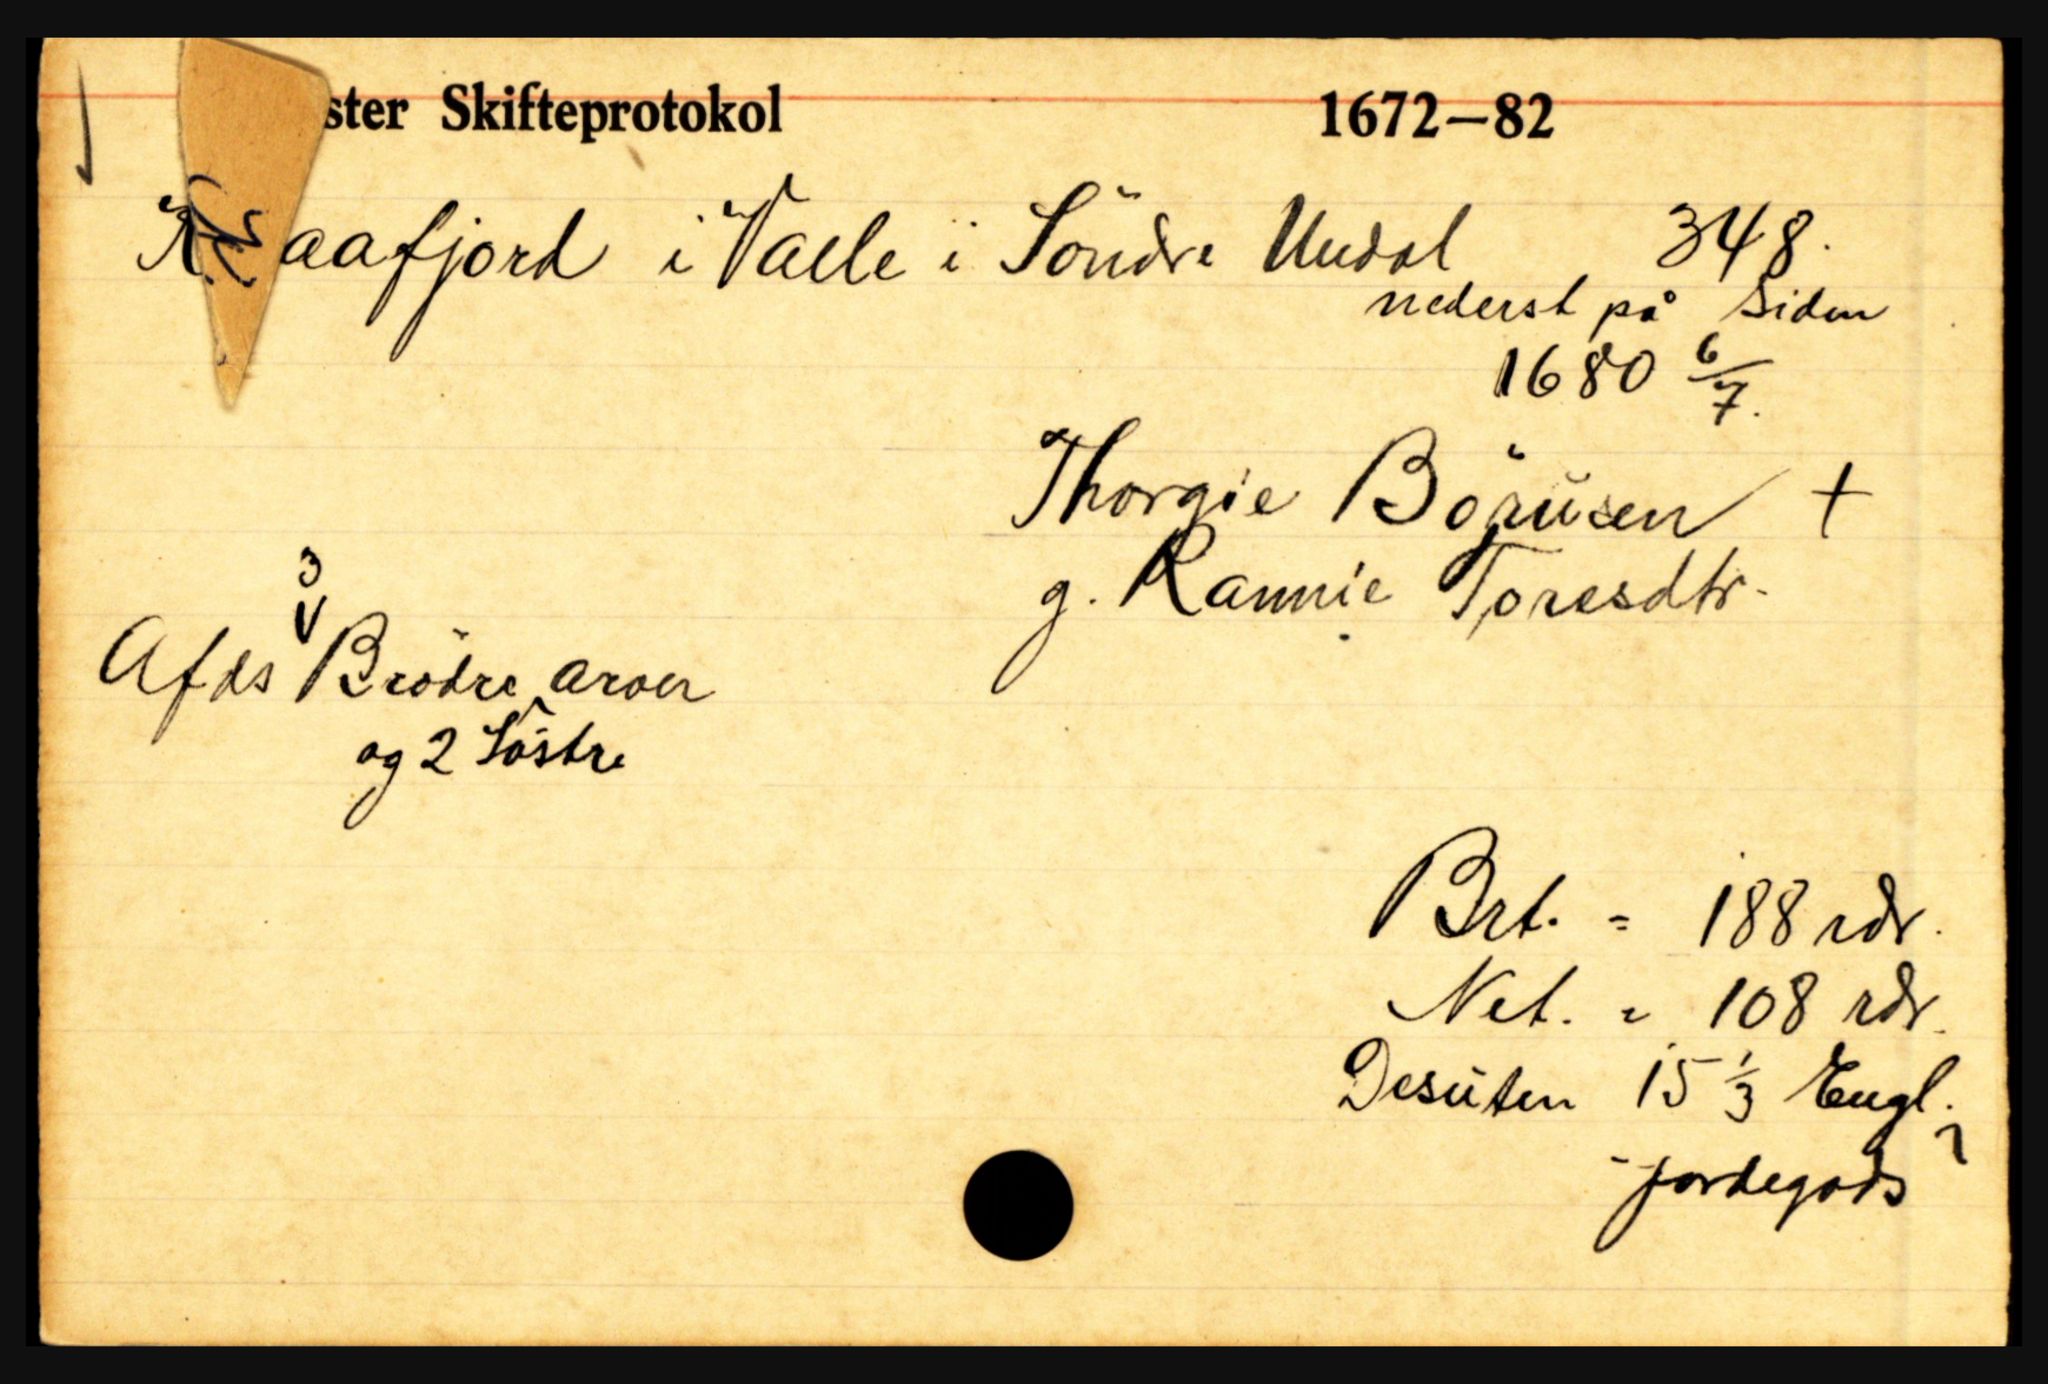 ster Skifteprotokol 1672—82
aafjord i Valle i Söndre Undal 348.
nederst på Siden
1680 6/7.
Thorgie Börusen +
g. Rannie Toresdtr.
3
V
Afds Brödre arver
og 2 Söstre
Brt. = 188 rdr.
Net. = 108 rdr.
Desuten 15 1/3 Engl.
jordegods ?